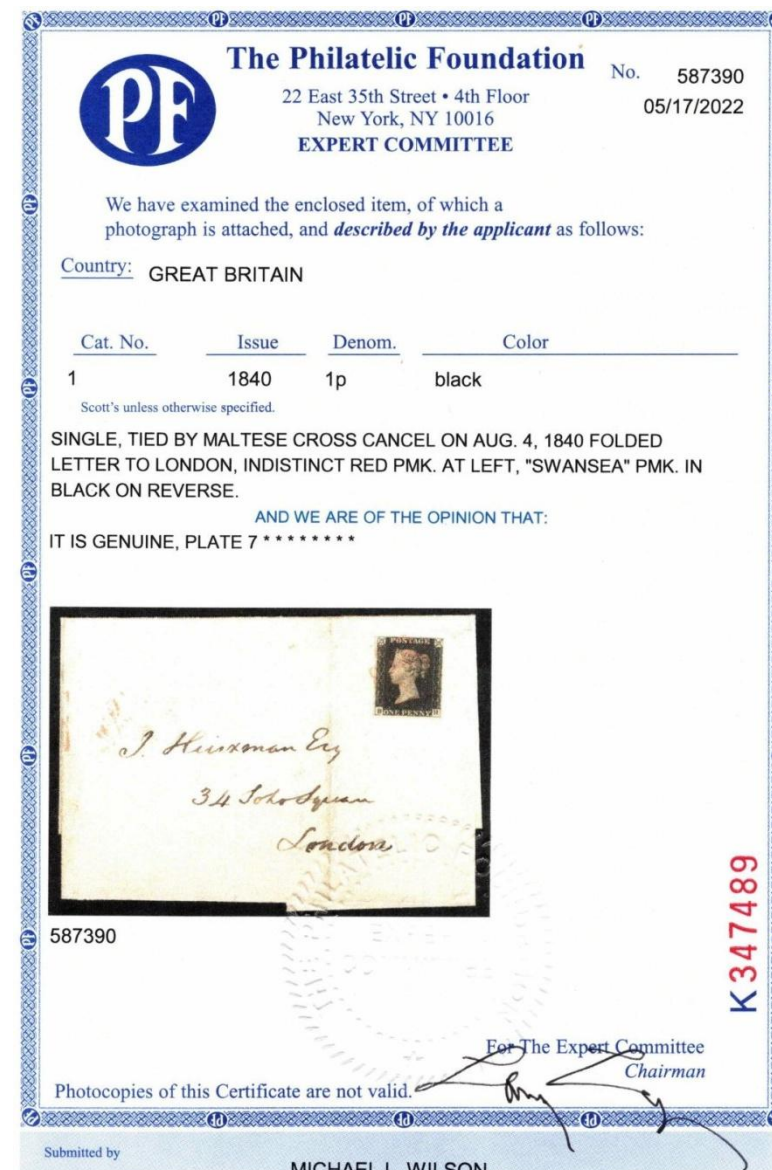 PF
PF
PF
PF
The Philatelic Foundation
22 East 35th Street • 4th Floor
New York, NY 10016
EXPERT COMMITTEE
No. 587390
05/17/2022
We have examined the enclosed item, of which a
photograph is attached, and described by the applicant as follows:
Country: GREAT BRITAIN
Cat. No. Issue Denom. Color
1 1840 1p black
Scott's unless otherwise specified.
SINGLE, TIED BY MALTESE CROSS CANCEL ON AUG. 4, 1840 FOLDED
LETTER TO LONDON, INDISTINCT RED PMK. AT LEFT, "SWANSEA" PMK. IN
BLACK ON REVERSE.
AND WE ARE OF THE OPINION THAT:
IT IS GENUINE, PLATE 7 * * * * * * * *
POSTAGE
ONE PENNY
J. Esq
34 Soho Square
London
587390
K347489
For The Expert Committee
Chairman
Photocopies of this Certificate are not valid.
Submitted by
MICHAEL L. WILSON